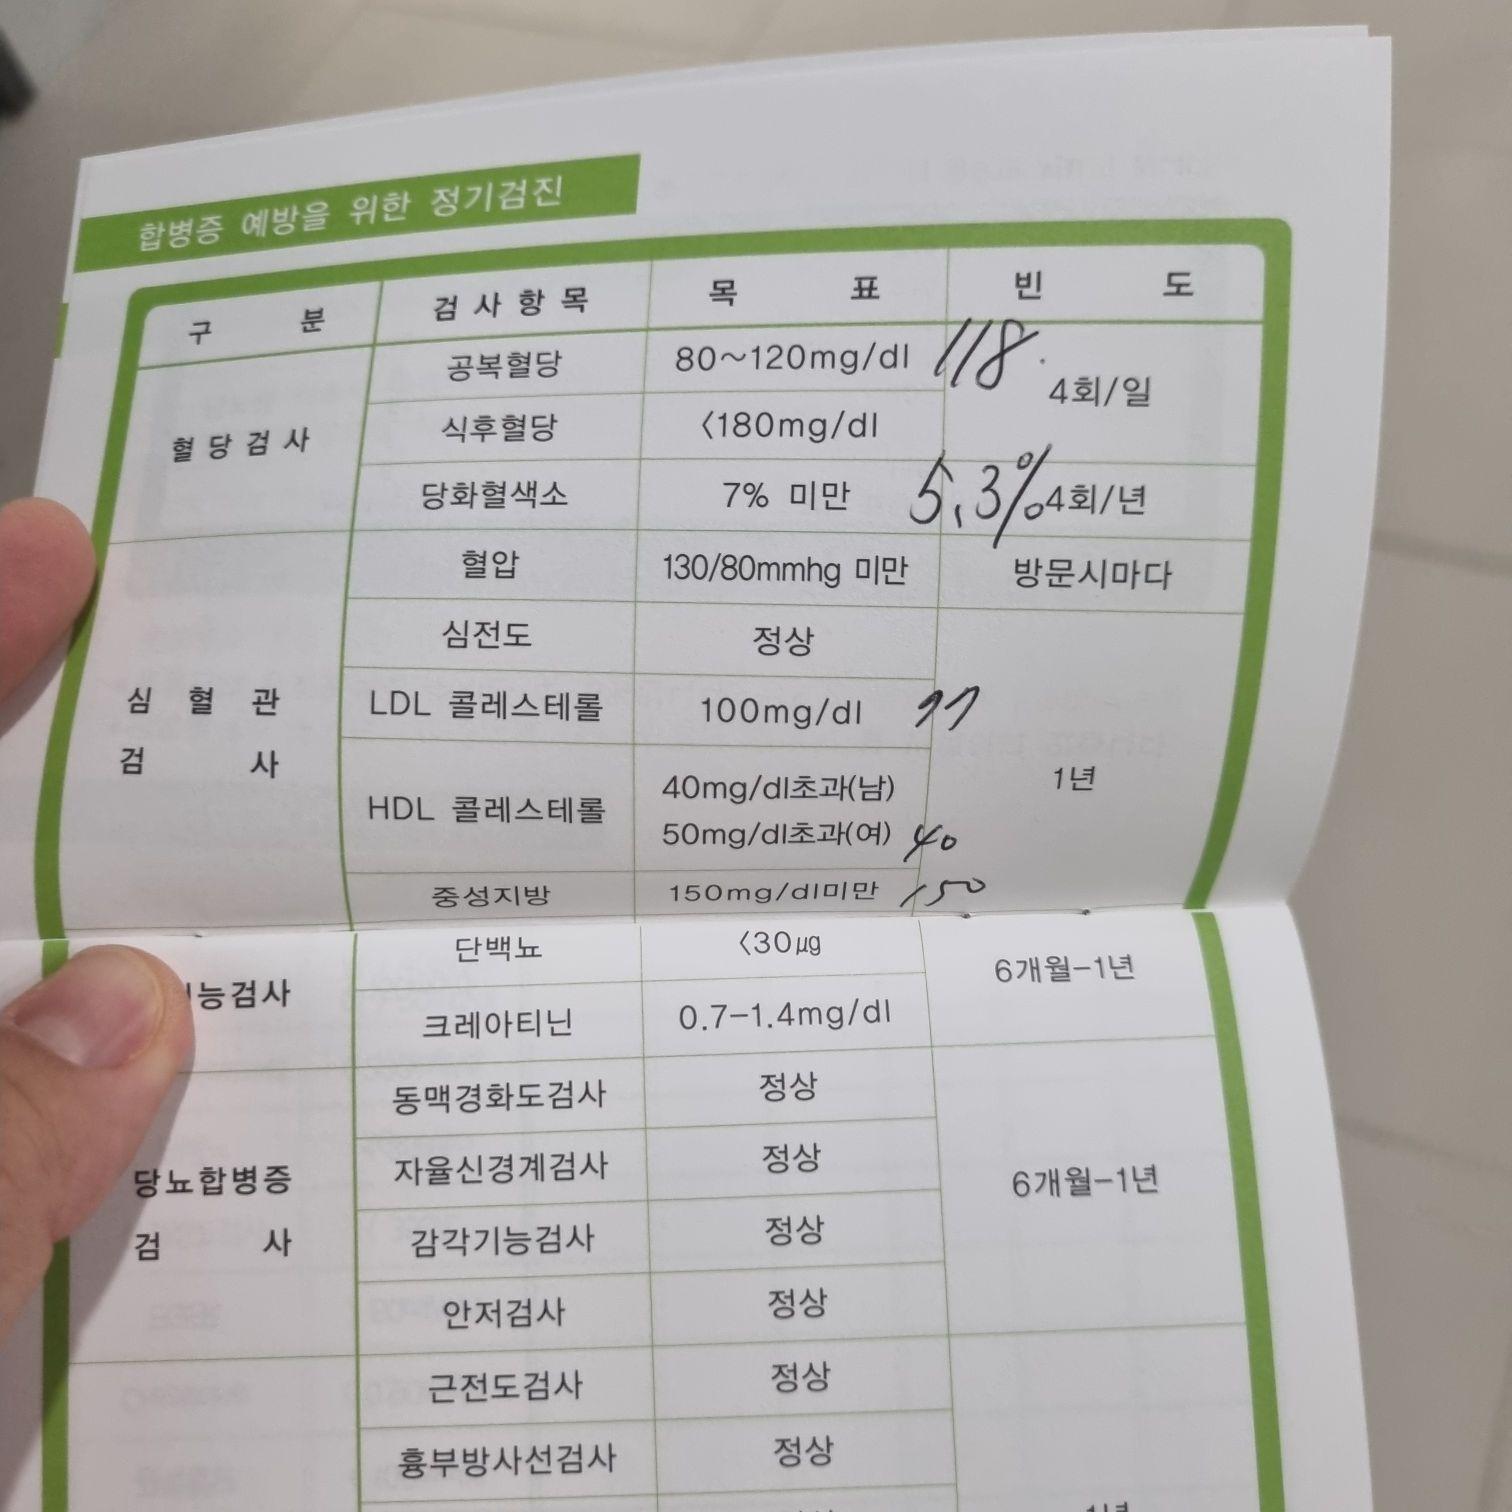 합병증 예방을 위한 정기검진
구 분 검 사 항 목 목 표 빈 도
혈 당 검 사
공복혈당 80~120mg/dl 118. 4회/일
식후혈당 <180mg/dl
당화혈색소 7% 미만 5.3% 4회/년
심 혈 관
검 사
혈압 130/80mmhg 미만 방문시마다
심전도 정상
LDL 콜레스테롤 100mg/dl
HDL 콜레스테롤 40mg/dl초과(남)
50mg/dl초과(여) 40
1년
중성지방 150mg/dl미만 150
능검사
단백뇨 <30㎍ 6개월-1년
크레아티닌 0.7-1.4mg/dl
당뇨합병증
검 사
동맥경화도검사 정상
자율신경계검사 정상 6개월-1년
감각기능검사 정상
안저검사 정상
근전도검사 정상
흉부방사선검사 정상